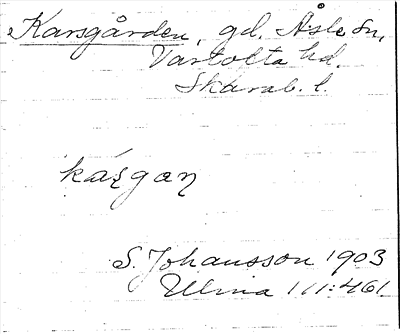 Karsgården, gd. Åsle sn,
Vartofta hd.
Skarab. l.
kázgaŋ
S. Johansson 1903
Ulma 111:461.